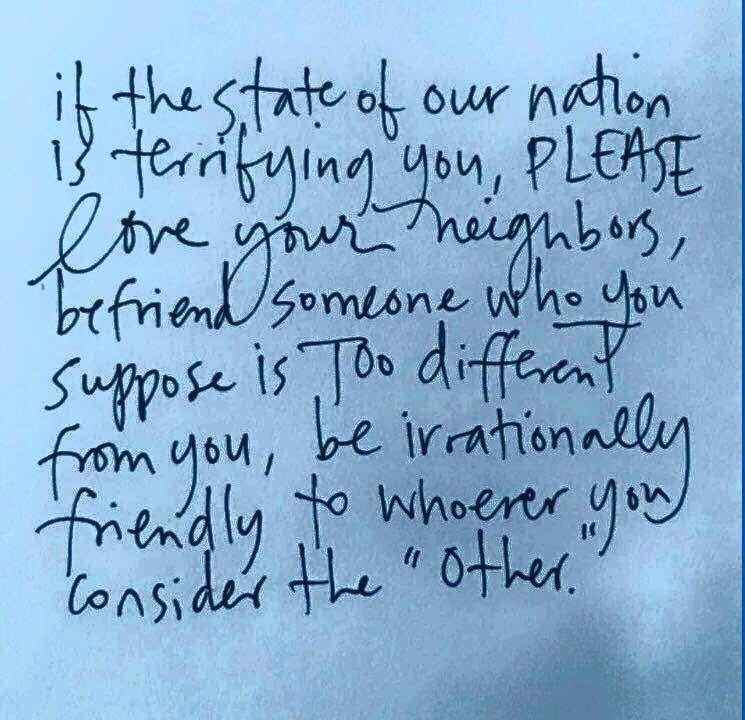 if the state of our nation
is terrifying you, PLEASE
love your neighbors,
befriend someone who you
suppose is TOO different
from you, be irrationally
friendly to whoever you
consider the "other."